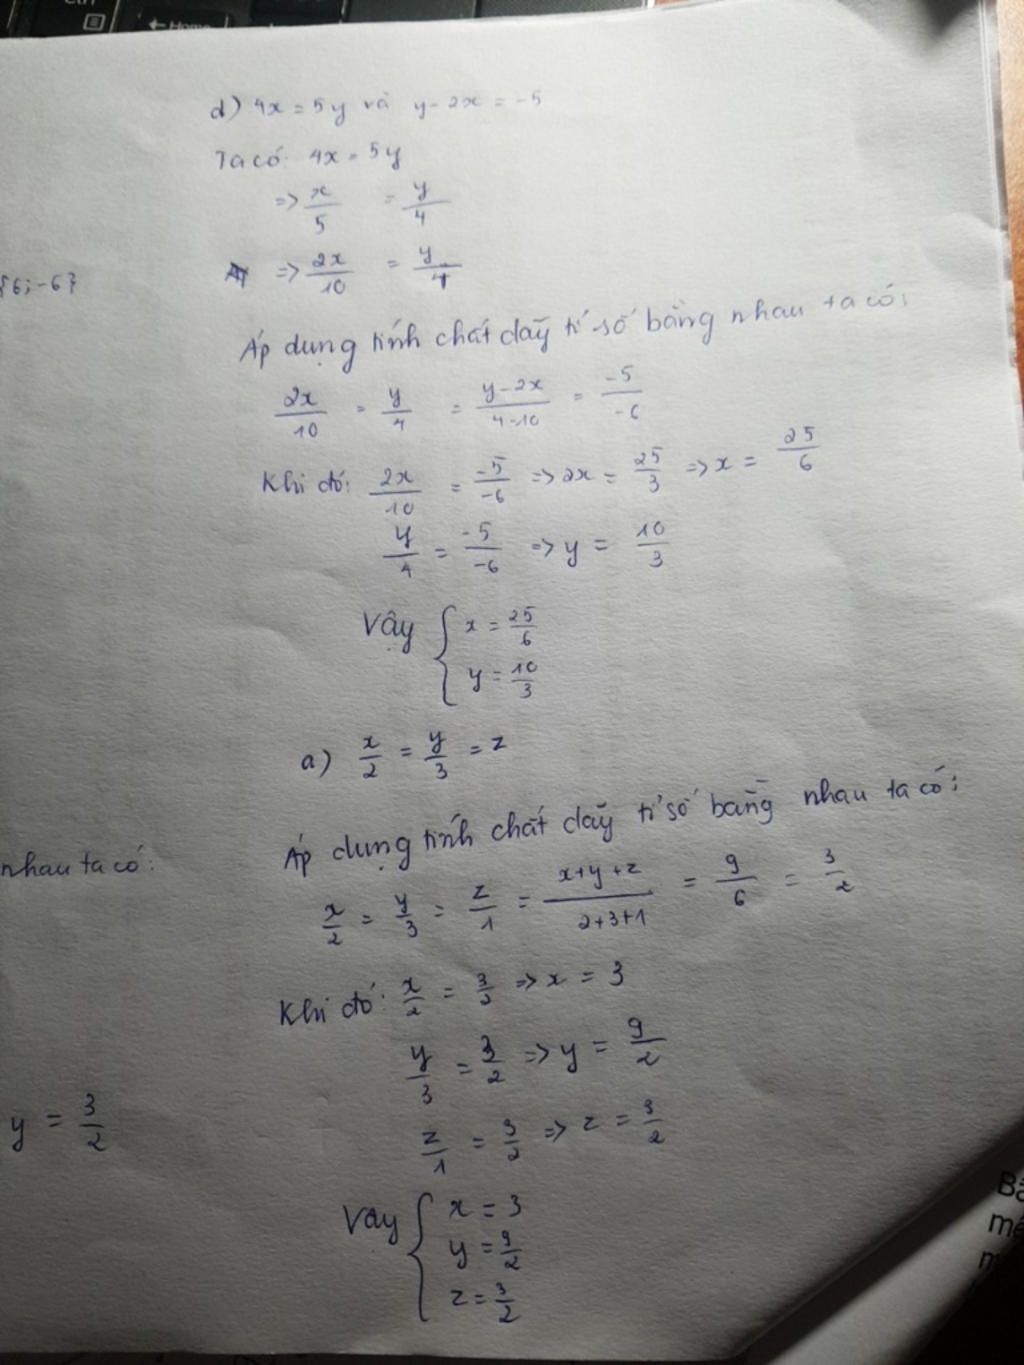 Home
d) 4x = 5y và y - 2x = -5
Ta có: 4x = 5y
=> x/5 = y/4
=> 2x/10 = y/4
{6; -6}
Áp dụng tính chất dãy tỉ số bằng nhau ta có:
2x/10 = y/4 = y-2x/4-10 = -5/-6
Khi đó: 2x/10 = -5/-6 => 2x = 25/3 => x = 25/6
y/4 = -5/-6 => y = 10/3
Vậy { x = 25/6
y = 10/3
a) x/2 = y/3 = z
Áp dụng tính chất dãy tỉ số bằng nhau ta có:
nhau ta có:
x/2 = y/3 = z/1 = x+y+z/2+3+1 = 9/6 = 3/2
Khi đó: x/2 = 3/2 => x = 3
y/3 = 3/2 => y = 9/2
y = 3/2
z/1 = 3/2 => z = 3/2
Vậy { x = 3
y = 9/2
z = 3/2